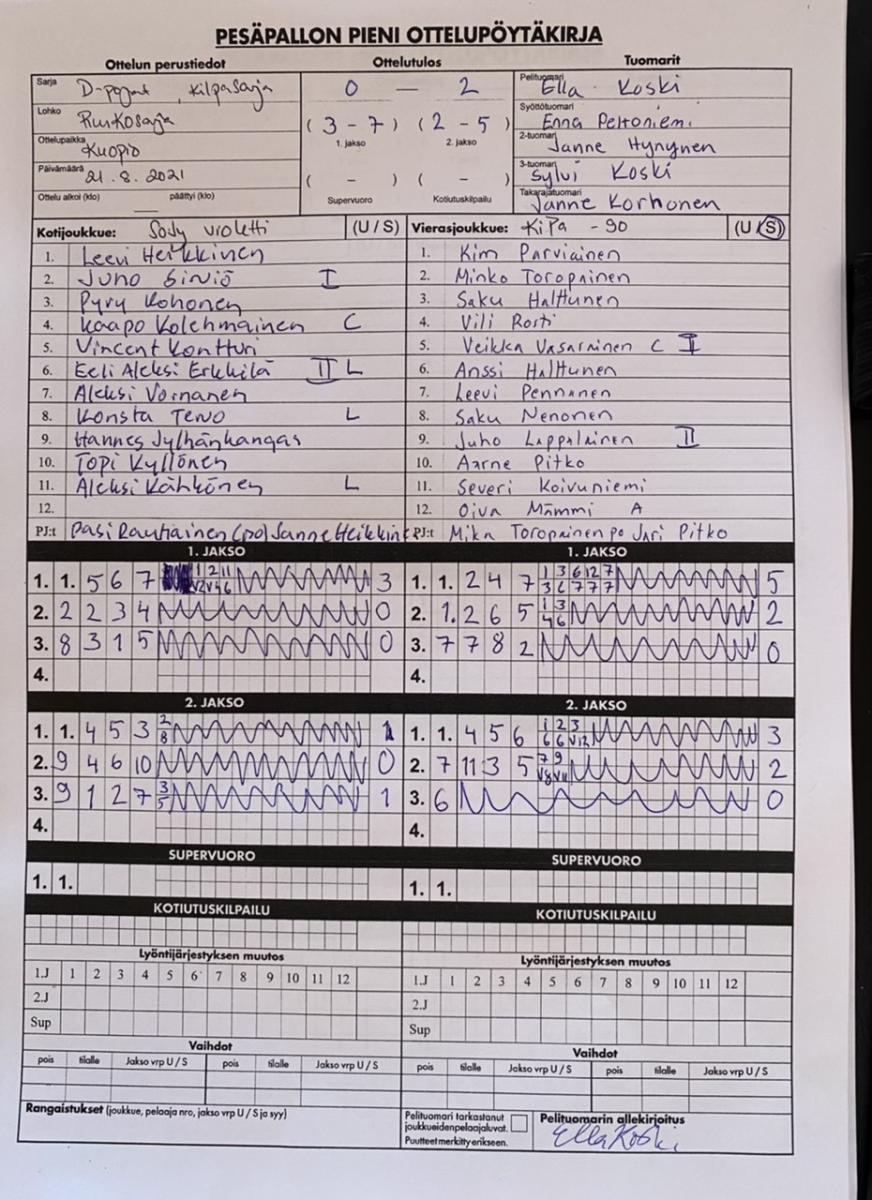 PESÄPALLON PIENI OTTELUPÖYTÄKIRJA
Ottelun perustiedot Ottelutulos Tuomarit
Sarja D-pojat, Kilpasarja 0 — 2 Pelituomari Ella Koski
Lohko Runkosarja (3 - 7) (2 - 5) Syöttötuomari Enna Peltoniemi
1. jakso 2. jakso
Ottelupaikka Kuopio 2-tuomari Janne Hynynen
Päivämäärä 21.8.2021 ( - ) ( - ) 3-tuomari Sylvi Koski
Ottelu alkoi (klo) — päättyi (klo) Supervuoro Kotiutuskilpailu Takarajatuomari Janne Korhonen
Kotijoukkue: SoJy violetti (U / S) Vierasjoukkue: KiPa -90 (U / S)
1. Leevi Heikkinen 1. Kim Parviainen
2. Juho Sirviö I 2. Minko Toropainen
3. Pyry Kohonen 3. Saku Halttunen
4. Kaapo Kolehmainen C 4. Vili Rosti
5. Vincent Kontturi 5. Veikka Vasarainen C I
6. Eeli Aleksi Erkkilä II L 6. Anssi Halttunen
7. Aleksi Vornanen 7. Leevi Pennanen
8. Konsta Tervo L 8. Saku Nenonen
9. Hannes Jylhänkangas 9. Juho Lappalainen II
10. Topi Kyllönen 10. Aarne Pitko
11. Aleksi Kähkönen L 11. Severi Koivuniemi
12. 12. Oiva Mämmi A
PJ:t Pasi Rautiainen (po) Janne Heikkinen PJ:t Mika Toropainen po Jari Pitko
1. JAKSO 1. JAKSO
1. 1. 5 6 7 1 2 11 V2 V4 6 3 1. 1. 2 4 7 1 3 6 12 7 3 6 7 7 7 5
2. 2 2 3 4 0 2. 1. 2 6 5 1 3 4 6 2
3. 8 3 1 5 0 3. 7 7 8 2 0
4. 4.
2. JAKSO 2. JAKSO
1. 1. 4 5 3 2 8 1 1. 1. 4 5 6 1 2 3 6 6 V12 3
2. 9 4 6 10 0 2. 7 11 3 5 7 9 V8 V11 2
3. 9 1 2 7 3 5 1 3. 6 0
4. 4.
SUPERVUORO SUPERVUORO
1. 1. 1. 1.
KOTIUTUSKILPAILU KOTIUTUSKILPAILU
Lyöntijärjestyksen muutos Lyöntijärjestyksen muutos
1.J 1 2 3 4 5 6 7 8 9 10 11 12 1.J 1 2 3 4 5 6 7 8 9 10 11 12
2.J 2.J
Sup Sup
Vaihdot Vaihdot
pois tilalle Jakso vrp U / S pois tilalle Jakso vrp U / S pois tilalle Jakso vrp U / S pois tilalle Jakso vrp U / S
Rangaistukset (joukkue, pelaaja nro, jakso vrp U / S ja syy) Pelituomari tarkastanut Pelituomarin allekirjoitus
joukkueidenpelaajaluvat.
Puutteet merkitty erikseen. Ella Koski